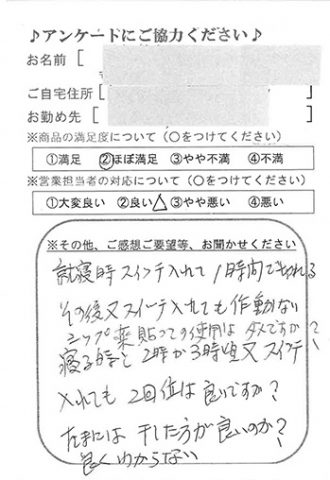 ♪アンケートにご協力ください♪
お名前 [
ご自宅住所 [ ]
お勤め先 [ ]
※商品の満足度について（○をつけてください）
①満足 ②ほぼ満足 ③やや不満 ④不満
※営業担当者の対応について（○をつけてください）
①大変良い ②良い△③やや悪い ④悪い
※その他、ご感想ご要望等、お聞かせください
就寝時スイッチ入れて1時間できれる
その後又スイッチ入れても作動ない
シップ薬貼っての使用はダメですか?
寝る時と2時か3時頃又スイッチ
入れても2回位は良いですか?
たまには干した方が良いのか?
良くわからない